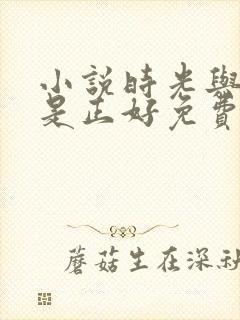 小說時光與
是正好免費
蘑菇生在深